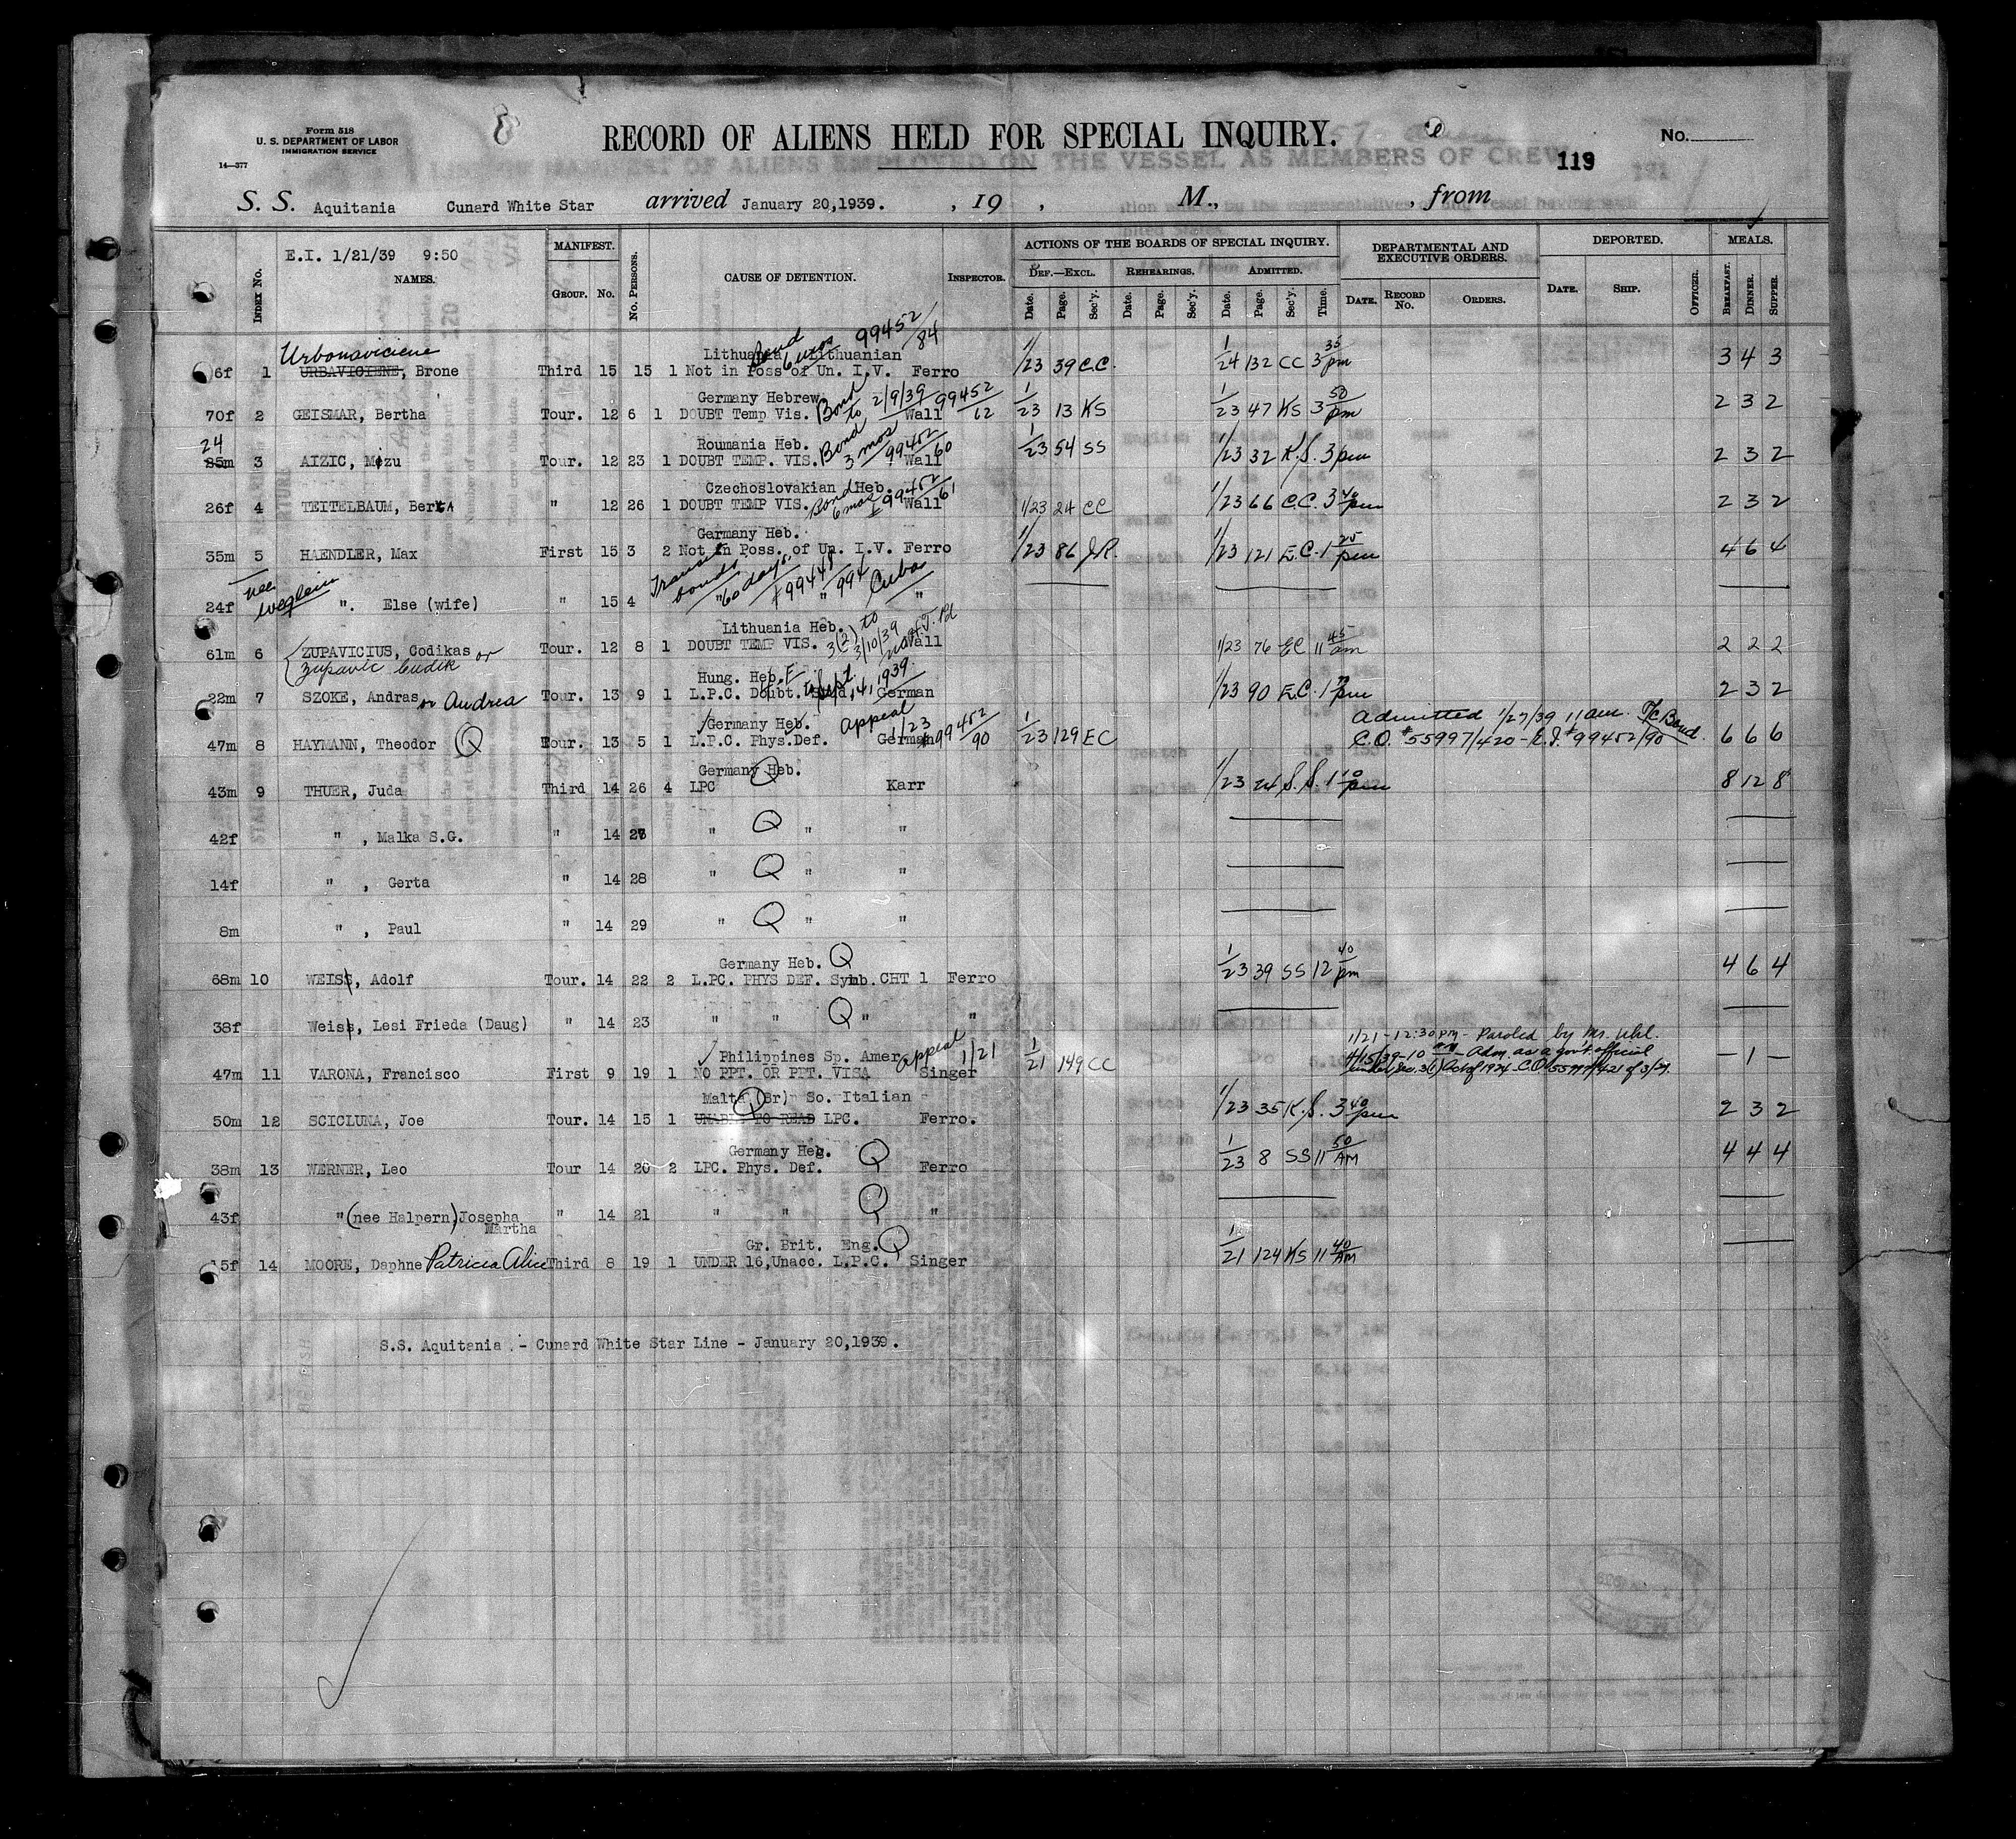 Form 518
U. S. DEPARTMENT OF LABOR
IMMIGRATION SERVICE
14—377
RECORD OF ALIENS HELD FOR SPECIAL INQUIRY.
119
No.
S. S. Aquitania Cunard White Star arrived January 20,1939. , 19 , M., , from
E.I. 1/21/39 9:50
INDEX No. NAMES. MANIFEST. GROUP. No. No. PERSONS. CAUSE OF DETENTION. INSPECTOR. ACTIONS OF THE BOARDS OF SPECIAL INQUIRY. DEF.—EXCL. Date. Page. Sec'y. REHEARINGS. Date. Page. Sec'y. ADMITTED. Date. Page. Sec'y. Time. DEPARTMENTAL AND EXECUTIVE ORDERS. DATE. RECORD No. ORDERS. DEPORTED. DATE. SHIP. OFFICER. MEALS. BREAKFAST. DINNER. SUPPER.
Urbonaviciene Lithuania Lithuanian Bond 6 mos 99452/84
6f 1 URBAVICIENE, Brone Third 15 15 1 Not in Poss of Un. I.V. Ferro 1/23 39 C.C. 1/24 132 CC 3 35 pm 3 4 3
Germany Hebrew Bond to 2/9/39 99452/62
70f 2 GEISMAR, Bertha Tour. 12 6 1 DOUBT Temp Vis. Wall 1/23 13 KS 1/23 47 KS 3 50 pm 2 3 2
24 Roumania Heb. Bond 3 mos 99452/60
35m 3 AIZIC, Mizu Tour. 12 23 1 DOUBT TEMP. VIS. Wall 1/23 54 SS 1/23 32 K.S. 3 pm 2 3 2
Czechoslovakian Heb. Bond 6 mos 99452/61
26f 4 TEITELBAUM, BertA " 12 26 1 DOUBT TEMP VIS. Wall 1/23 24 CC 1/23 66 C.C. 3 40 pm 2 3 2
Germany Heb.
35m 5 HAENDLER, Max First 15 3 2 Not in Poss. of Un. I.V. Ferro 1/23 86 J.R. 1/23 121 E.C. 1 25 pm 4 6 4
nee Weglein Transit bonds 60 days. 99448 " 994 Cuba
24f ". Else (wife) " 15 4 " "
Lithuania Heb. 3(2) to 3/10/39
61m 6 ZUPAVICIUS, Codikas or Tour. 12 8 1 DOUBT TEMP VIS. Wall 1/23 76 EC 11 45 am 2 2 2
Zupavic Cudik
Hung. Heb. Sept. 14, 1939.
22m 7 SZOKE, Andras or Andrea Tour. 13 9 1 L.P.C. Doubt. Stud. German 1/23 90 E.C. 1 pm 2 3 2
Germany Heb. Appeal 1/23 #99452/90 Admitted 1/27/39 11 am. T/C Bond.
47m 8 HAYMANN, Theodor Q Tour. 13 5 1 L.P.C. Phys.Def. German 1/23 129 EC C.O. #55997/420 - E.I. #99452/90 6 6 6
Germany Heb.
43m 9 THUER, Juda Third 14 26 4 LPC Q Karr 1/23 24 S.S. 1 10 pm 8 12 8
42f " , Malka S.G. " 14 27 " Q " "
14f " , Gerta " 14 28 " Q " "
8m " , Paul " 14 29 " Q " "
Germany Heb. Q
68m 10 WEISS, Adolf Tour. 14 22 2 L.PC. PHYS DEF. Symb. CHT 1 Ferro 1/23 39 SS 12 40 pm 4 6 4
38f Weiss, Lesi Frieda (Daug) " 14 23 " " Q " "
1/21 - 12:30 pm - Paroled by Mr. Uhl.
Philippines Sp. Amer appeal 1/21 4/15/39 - 10 am - Adm. as a gov't official
47m 11 VARONA, Francisco First 9 19 1 NO PPT. OR PPT. VISA Singer 1/21 149 CC under Sec. 3(1) Act of 1924 - C.O. 55997/421 of 3/27. — 1 —
Malta (Br) So. Italian
50m 12 SCICLUNA, Joe Tour. 14 15 1 UNABLE TO READ LPC. Q Ferro. 1/23 35 K.S. 3 40 pm 2 3 2
Germany Heb. Q
38m 13 WERNER, Leo Tour 14 20 2 LPC. Phys. Def. Ferro 1/23 8 SS 11 50 AM 4 4 4
43f " (nee Halpern) Josepha " 14 21 " " Q "
Martha
Gr. Brit. Eng. Q
15f 14 MOORE, Daphne Patricia Alice Third 8 19 1 UNDER 16,Unacc. L.P.C. Singer 1/21 124 KS 11 40 AM
S.S. Aquitania - Cunard White Star Line - January 20,1939.